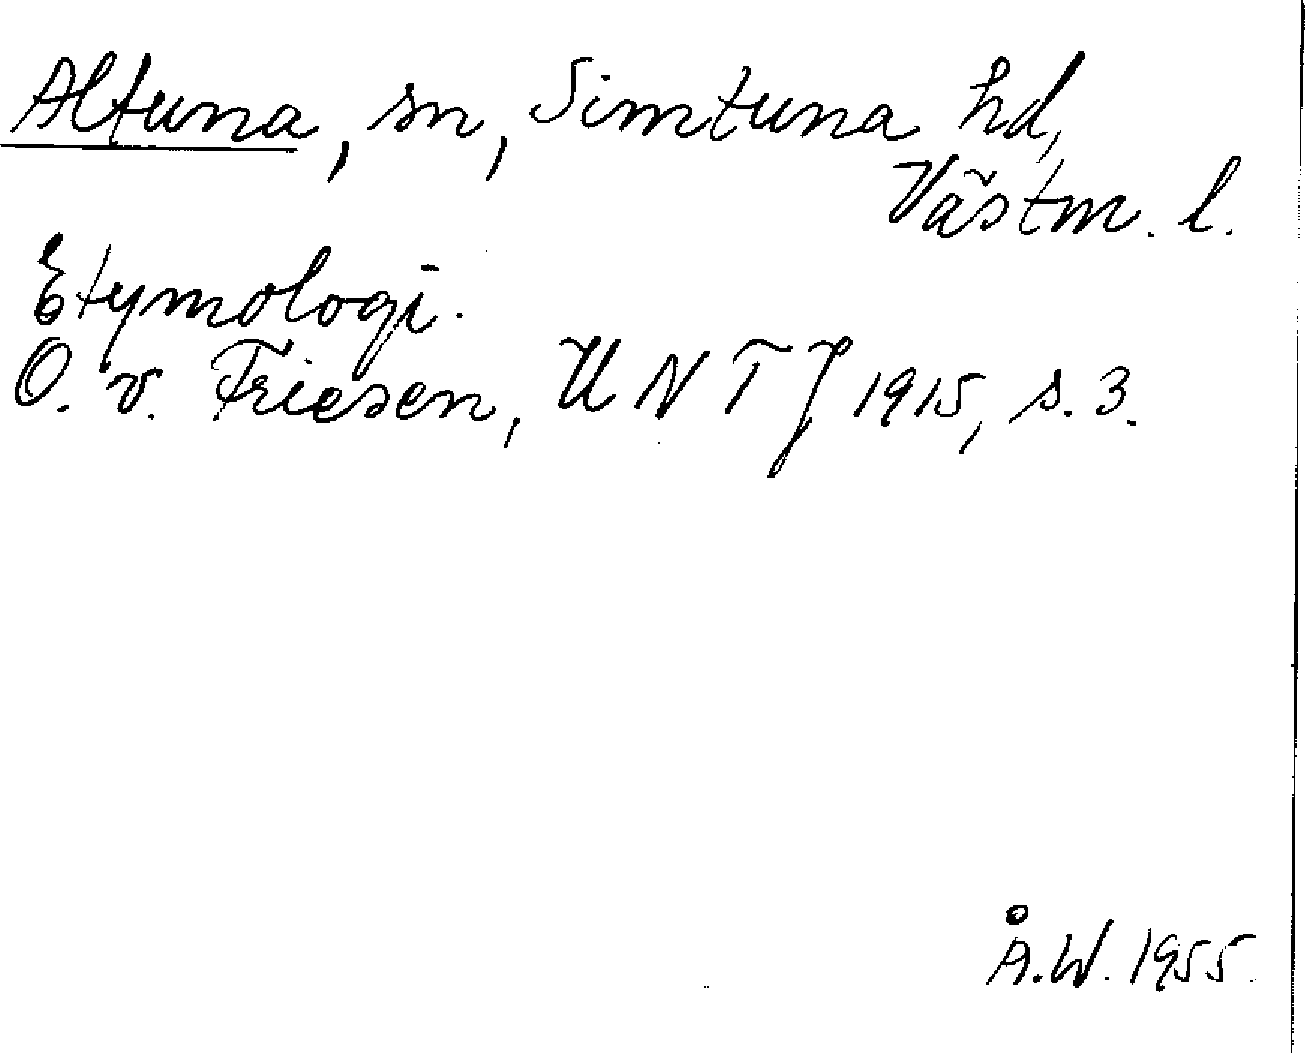 Altuna, sn, Simtuna hd,
Västm. l.
Etymologi.
O. v. Friesen, UNTJ 1915, s. 3.
Å.W. 1955.